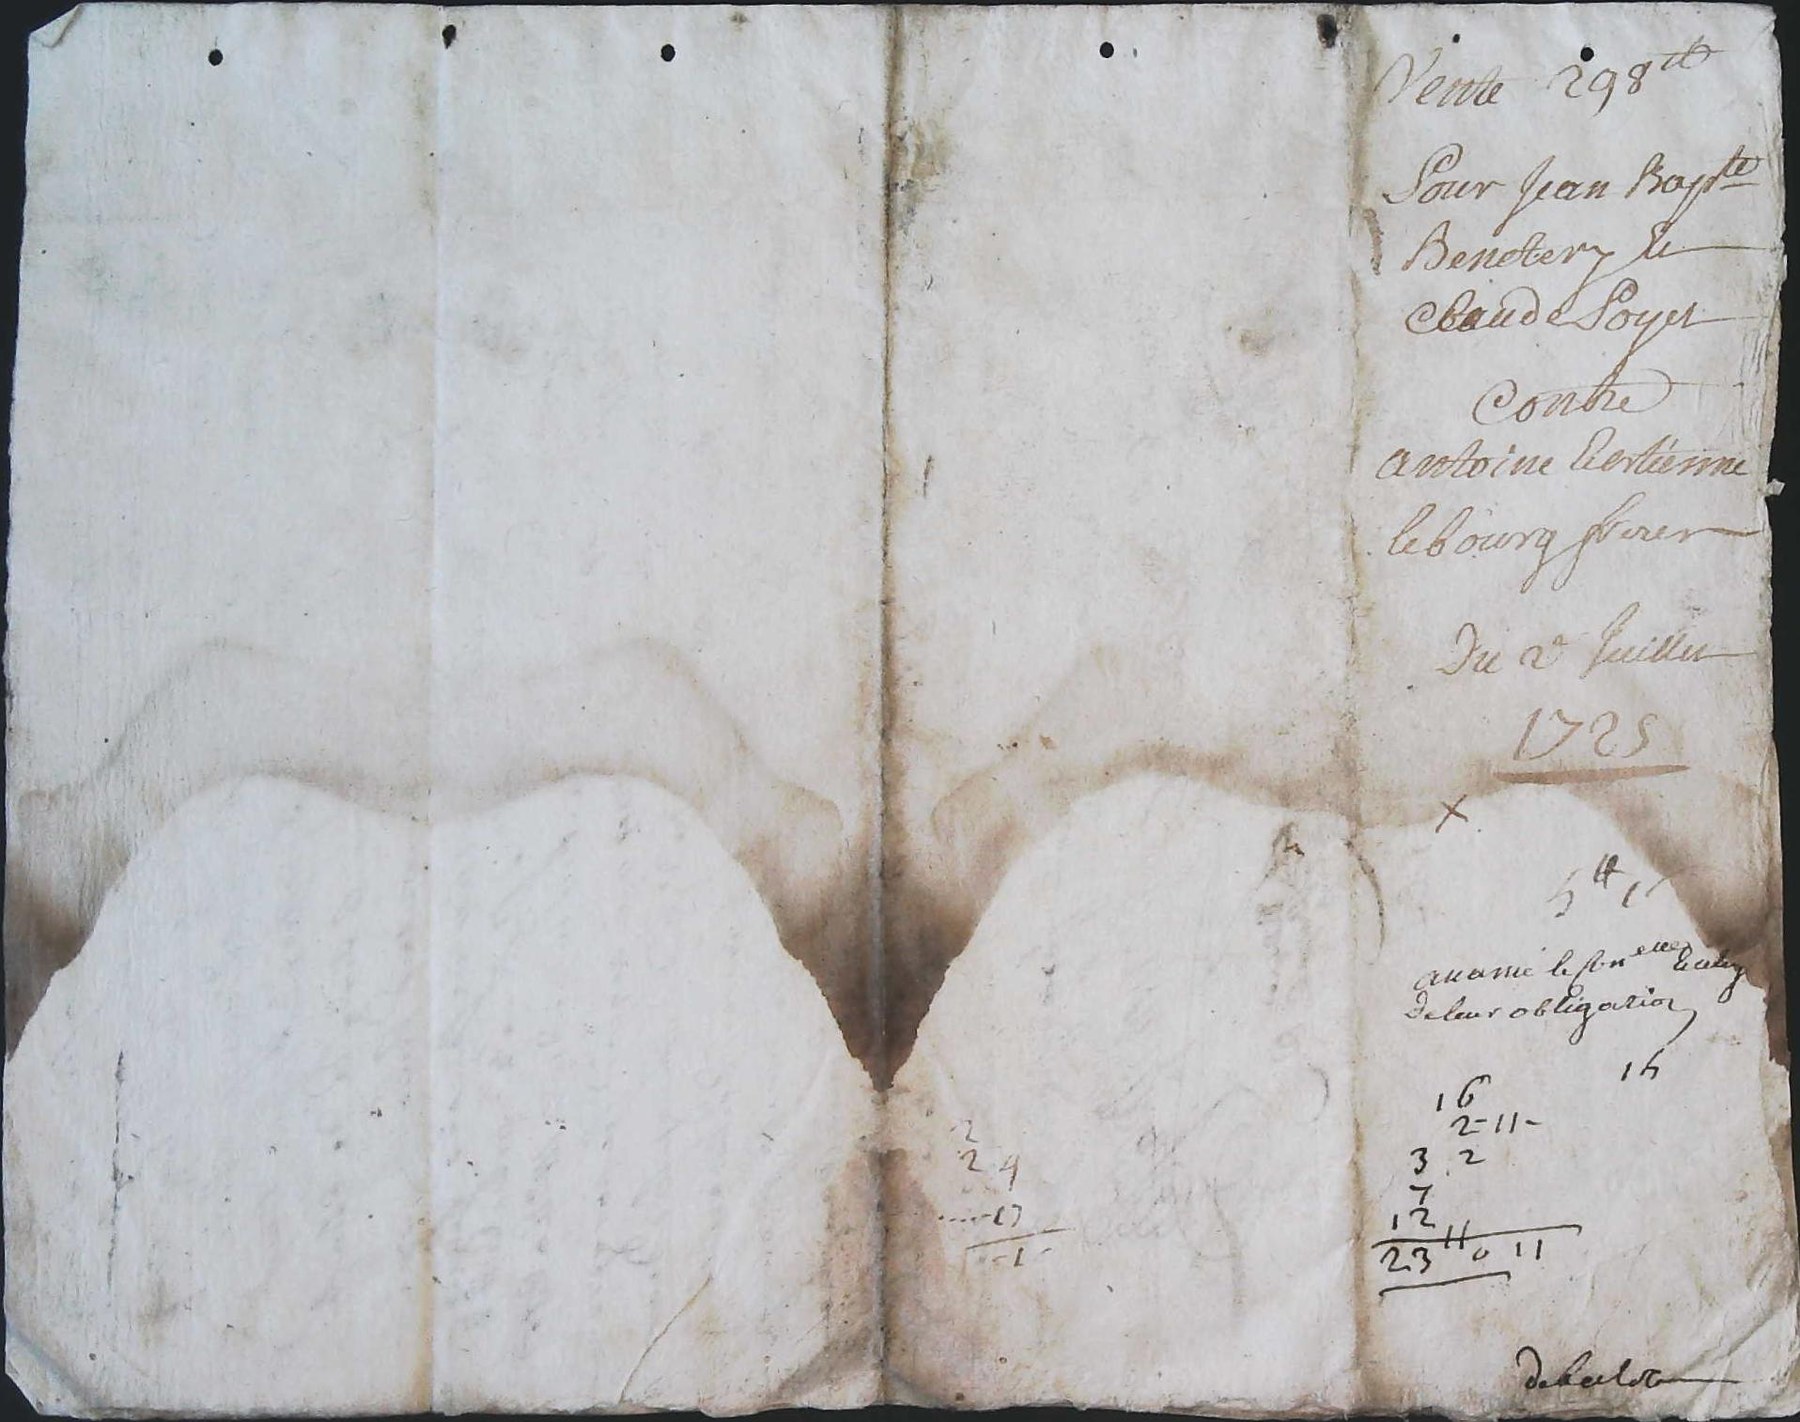 Vente 298 ₶
Pour Jean Bapte
Benetery Et
Claude Poyet
Contre
antoine Eestienne
lebourg freres
Du 2e Juillet
1725
X
5 ₶ 1
de leur obligation
15
16
2-11-
3 2
7
12
23 ₶ 0 11
2
2 4
17
-1-